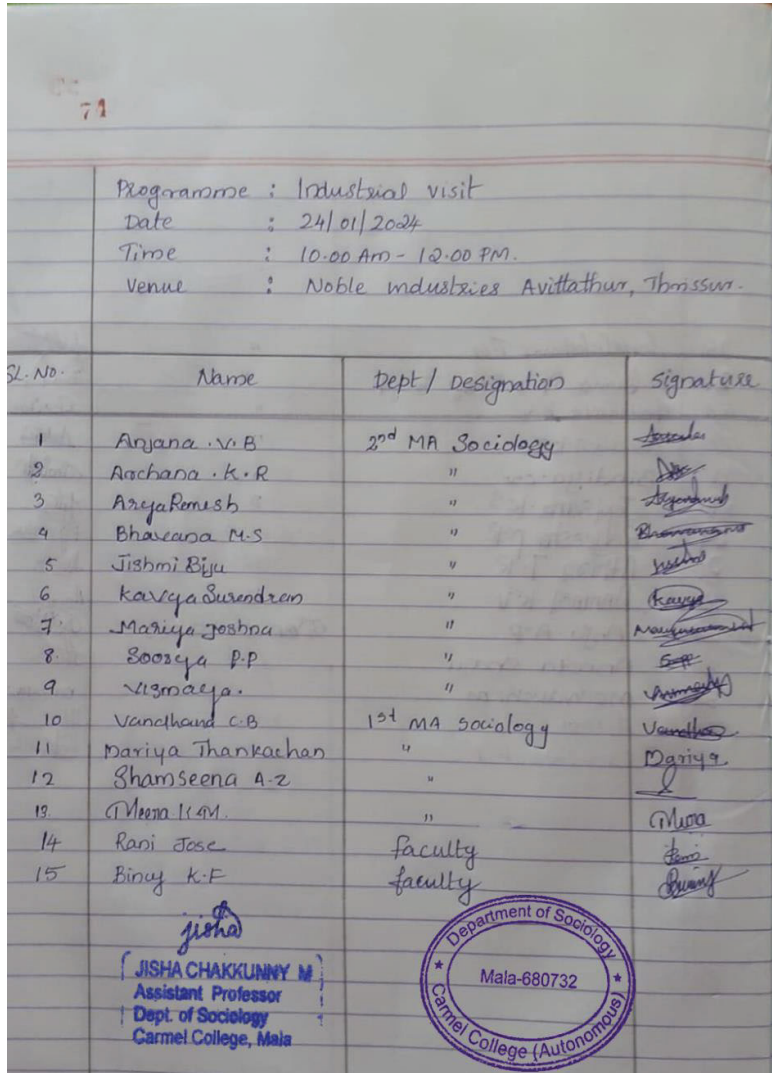 71
Programme : Industrial visit
Date : 24/01/2024
Time : 10.00 Am - 12.00 PM.
Venue : Noble industries Avittathur, Thrissur.
SL. NO. Name Dept / Designation Signature
1 Anjana . V. B 2nd MA Sociology
2 Archana . K. R "
3 Arya Remesh "
4 Bhavana M.S "
5 Jishmi Biju "
6 Kavya Surendran " Kavya
7. Mariya Joshna "
8. Soorya P.P "
9 Vismaya. "
10 Vandhana C.B 1st MA Sociology
11 Mariya Thankachan " Mariya
12 Shamseena A.Z "
13. Meera K.M. " Meera
14 Rani Jose faculty
15 Binuj K.F faculty
jisha
JISHA CHAKKUNNY M
Assistant Professor
Dept. of Sociology
Carmel College, Mala
Department of Sociology
Mala-680732
Carmel College (Autonomous)